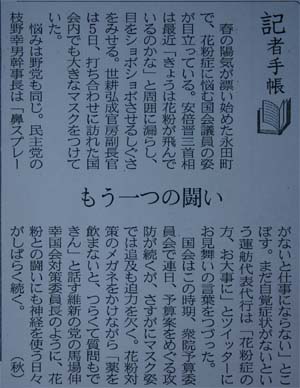 記者手帳
もう一つの闘い
春の陽気が漂い始めた永田町
で、花粉症に悩む国会議員の姿
が目立っている。安倍晋三首相
は最近「きょうは花粉が飛んで
いるのかな」と周囲に漏らし、
目をショボショボさせるしぐさ
をみせる。世耕弘成官房副長官
は5日、打ち合わせに訪れた国
会内でも大きなマスクをつけて
いた。
悩みは野党も同じ。民主党の
枝野幸男幹事長は「鼻スプレー
がないと仕事にならない」とこ
ぼす。まだ自覚症状がないとい
う蓮舫代表代行は「花粉症の
方、お大事に」とツイッターに
お見舞いの言葉をつづった。
国会はこの時期、衆院予算委
員会で連日、予算案をめぐる攻
防が続くが、さすがにマスク姿
では追及も迫力を欠く。花粉対
策のメガネをかけながら「薬を
飲まないと、つらくて質問もで
きん」と話す維新の党の馬場伸
幸国会対策委員長のように、花
粉との闘いにも神経を使う日々
がしばらく続く。
（秋）